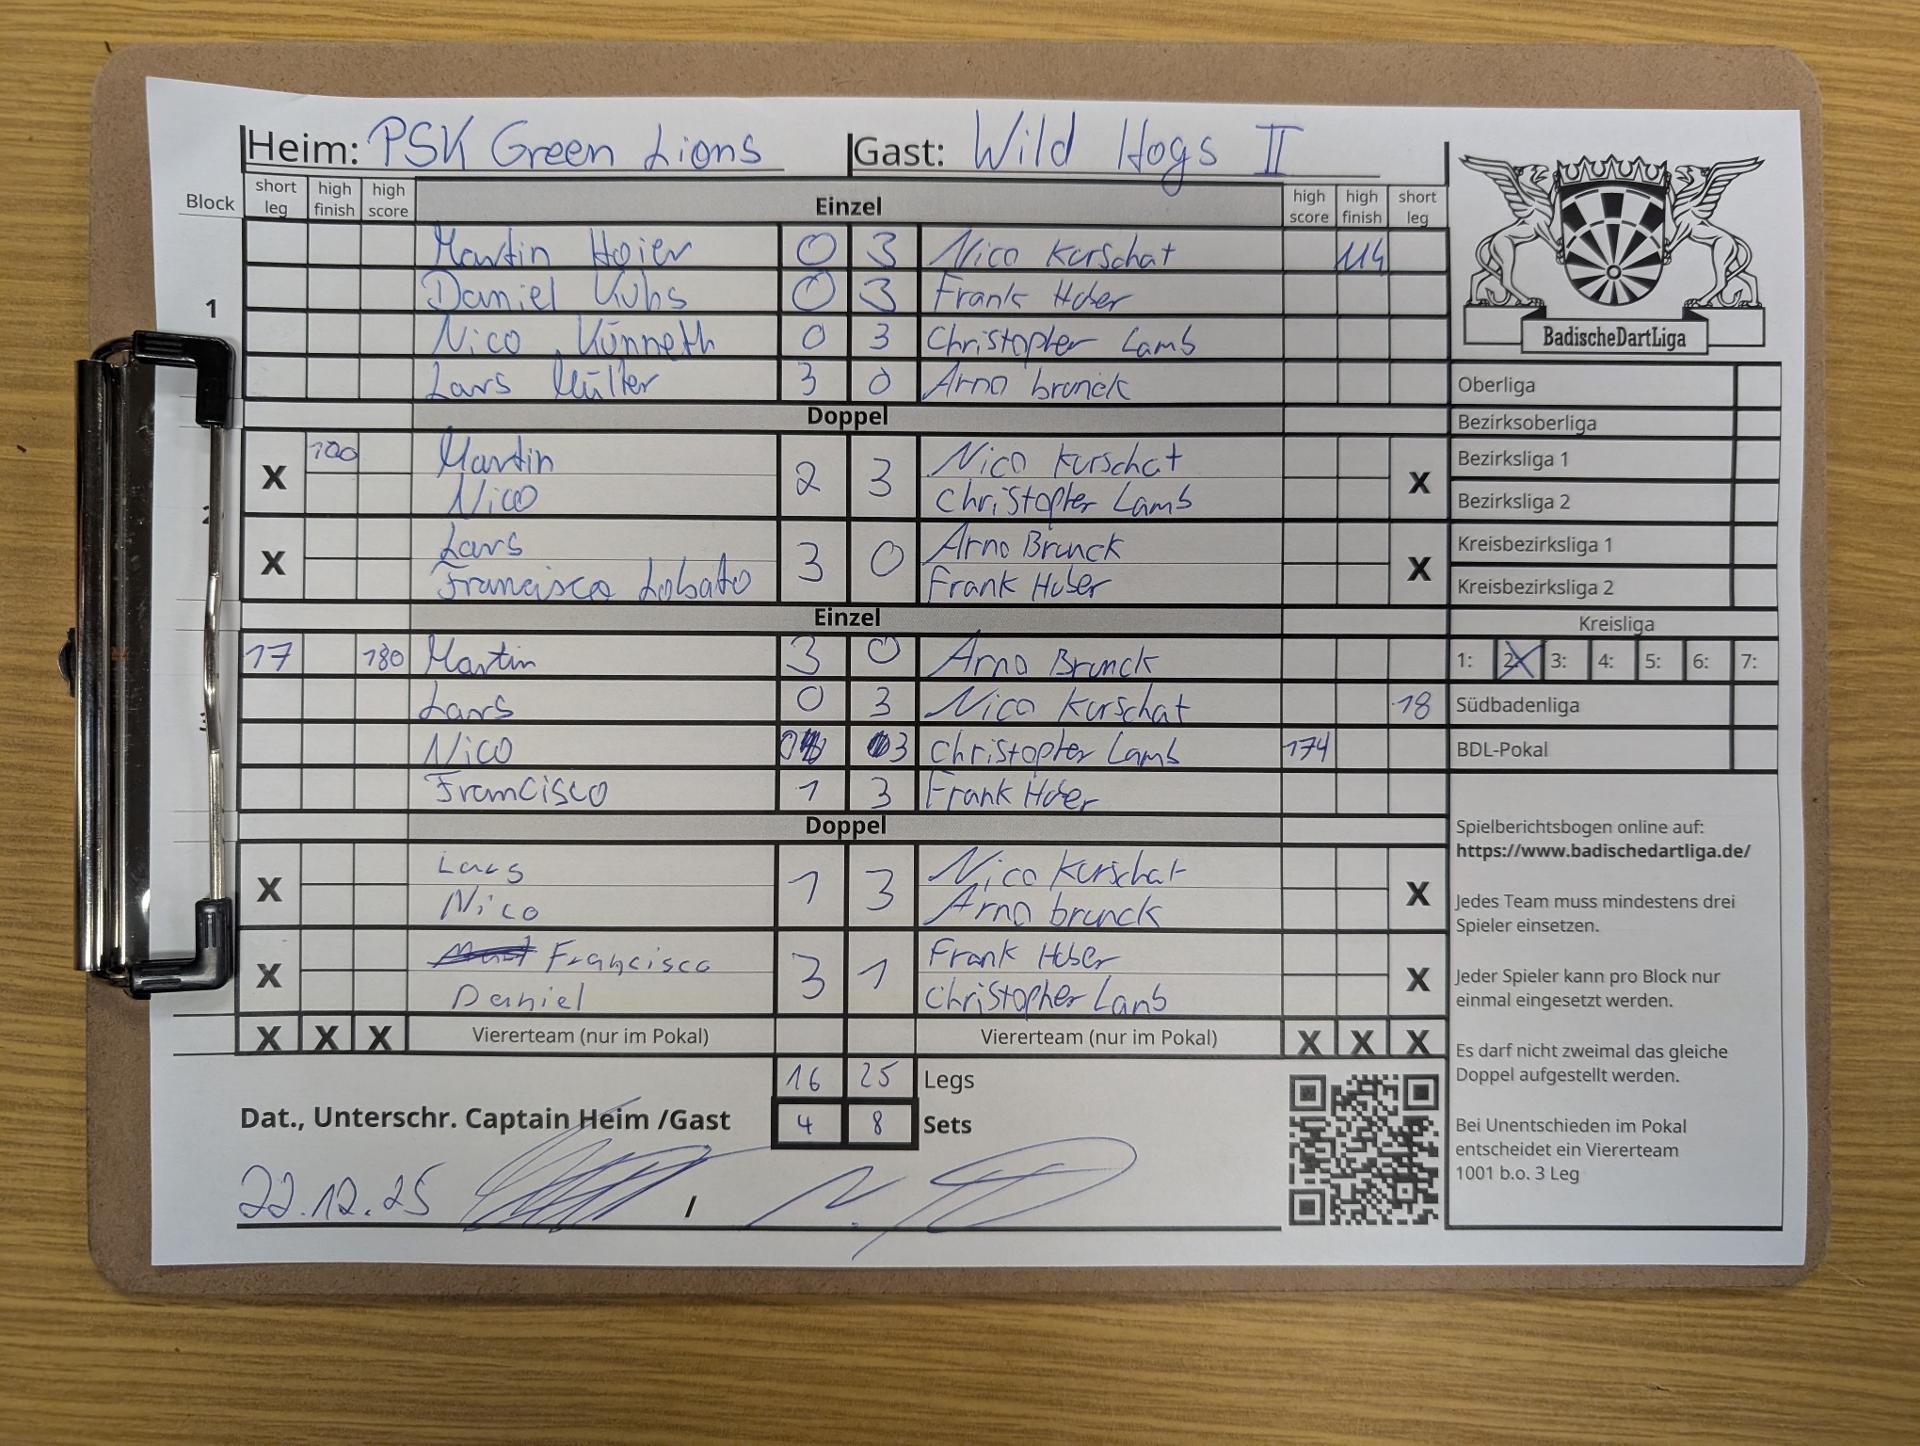 Heim: PSK Green Lions Gast: Wild Hogs II
Block short leg high finish high score Einzel high score high finish short leg
Martin Hoier 0 3 Nico Kurschat 114
1 Daniel Kuhs 0 3 Frank Huber
Nico Künneth 0 3 Christopher Lamb
Lars Müller 3 0 Arno brunck
Doppel
X 100 Martin 2 3 Nico Kurschat X
2 Nico Christopher Lamb
X Lars 3 0 Arno Brunck X
Francisco Lobato Frank Huber
Einzel
17 180 Martin 3 0 Arno Brunck
Lars 0 3 Nico Kurschat 18
3 Nico 0 3 Christopher Lamb 174
Francisco 1 3 Frank Huber
Doppel
X Lars 1 3 Nico Kurschat X
Nico Arno brunck
X Francisco 3 1 Frank Huber X
Daniel Christopher Lamb
X X X Viererteam (nur im Pokal) Viererteam (nur im Pokal) X X X
16 25 Legs
Dat., Unterschr. Captain Heim /Gast 4 8 Sets
22.12.25 /
BadischeDartLiga
Oberliga
Bezirksoberliga
Bezirksliga 1
Bezirksliga 2
Kreisbezirksliga 1
Kreisbezirksliga 2
Kreisliga
1: 2: 3: 4: 5: 6: 7:
Südbadenliga
BDL-Pokal
Spielberichtsbogen online auf:
https://www.badischedartliga.de/
Jedes Team muss mindestens drei
Spieler einsetzen.
Jeder Spieler kann pro Block nur
einmal eingesetzt werden.
Es darf nicht zweimal das gleiche
Doppel aufgestellt werden.
Bei Unentschieden im Pokal
entscheidet ein Viererteam
1001 b.o. 3 Leg